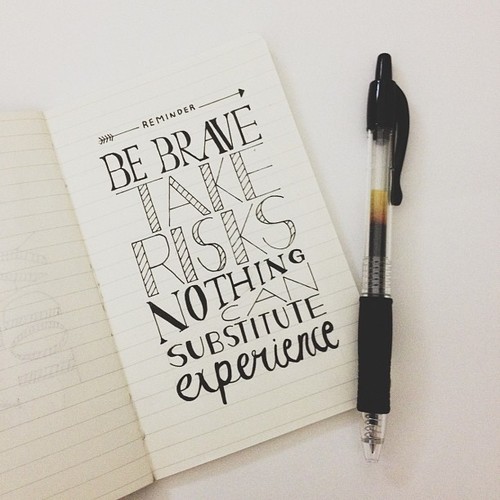 REMINDER
BE BRAVE
TAKE
RISKS
NOTHING
CAN
SUBSTITUTE
experience